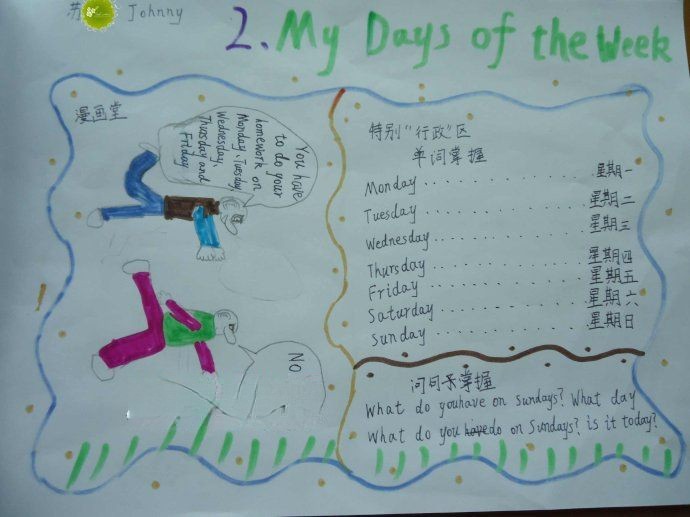 苏 Johnny
2. My Days of the Week
漫画堂
You have
to do your
homework on
Monday、Tuesday
Wednesday、
Thursday and
Friday
No
特别“行政”区
单词掌握
Monday . . . . . . . . . . . . . . 星期一
Tuesday . . . . . . . . . . . . . . 星期二
Wednesday . . . . . . . . . . . . 星期三
Thursday . . . . . . . . . . . . . 星期四
Friday . . . . . . . . . . . . . . 星期五
Saturday . . . . . . . . . . . . . 星期六
Sunday . . . . . . . . . . . . . . 星期日
问句末掌握
What do youhave on sundays? What day
What do you do on Sundays? is it today?